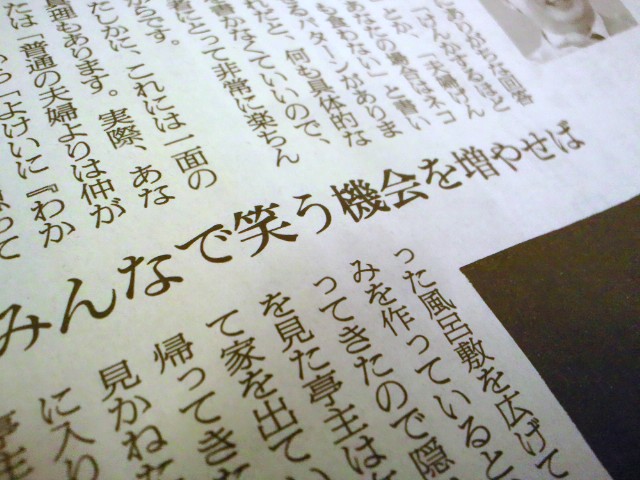 にありがちな回答
「けんかするほど
、「夫婦げん
あなたの場合はネコ
も食わない」と書い
るパターンがありま
れたと、何も具体的な
書かなくていいので、
者にとって非常に楽ちん
からです。
たしかに、これには一面の
真理もあります。実際、あな
たは「普通の夫婦よりは仲が
「よけいに『わか
って
みんなで笑う機会を増やせば
った風呂敷を広げて
みを作っていると
ってきたので隠
を見た亭主は
て家を出てい
帰ってきた
見かねた
に入り
亭主